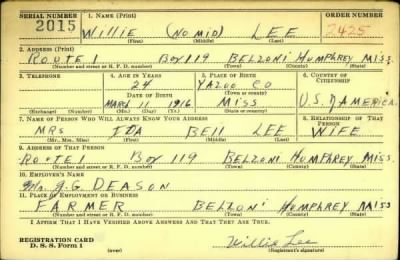 SERIAL NUMBER 1. NAME (Print) ORDER NUMBER
2015 WILLIE (NO MID) LEE 2435
(First) (Middle) (Last)
2. ADDRESS (Print)
ROUTE 1 BOX 119 BELZONI HUMPHREY MISS.
(Number and street or R. F. D. number) (Town) (County) (State)
3. TELEPHONE 4. AGE IN YEARS 5. PLACE OF BIRTH 6. COUNTRY OF CITIZENSHIP
24 YAZOO CO
DATE OF BIRTH (Town or county)
MARCH 11 1916 MISS U.S. AMERICA
(Exchange) (Number) (Mo.) (Day) (Yr.) (State or country)
7. NAME OF PERSON WHO WILL ALWAYS KNOW YOUR ADDRESS 8. RELATIONSHIP OF THAT PERSON
MRS IDA BELL LEE WIFE
(Mr., Mrs., Miss) (First) (Middle) (Last)
9. ADDRESS OF THAT PERSON
ROUTE 1 BOX 119 BELZONI HUMPHREY MISS.
(Number and street or R. F. D. number) (Town) (County) (State)
10. EMPLOYER'S NAME
Mr. J.G. DEASON
11. PLACE OF EMPLOYMENT OR BUSINESS
FARMER BELZONI HUMPHREY MISS
(Number and street or R. F. D. number) (Town) (County) (State)
I AFFIRM THAT I HAVE VERIFIED ABOVE ANSWERS AND THAT THEY ARE TRUE.
REGISTRATION CARD
D. S. S. Form 1 (over) Willie Lee
(Registrant's signature)